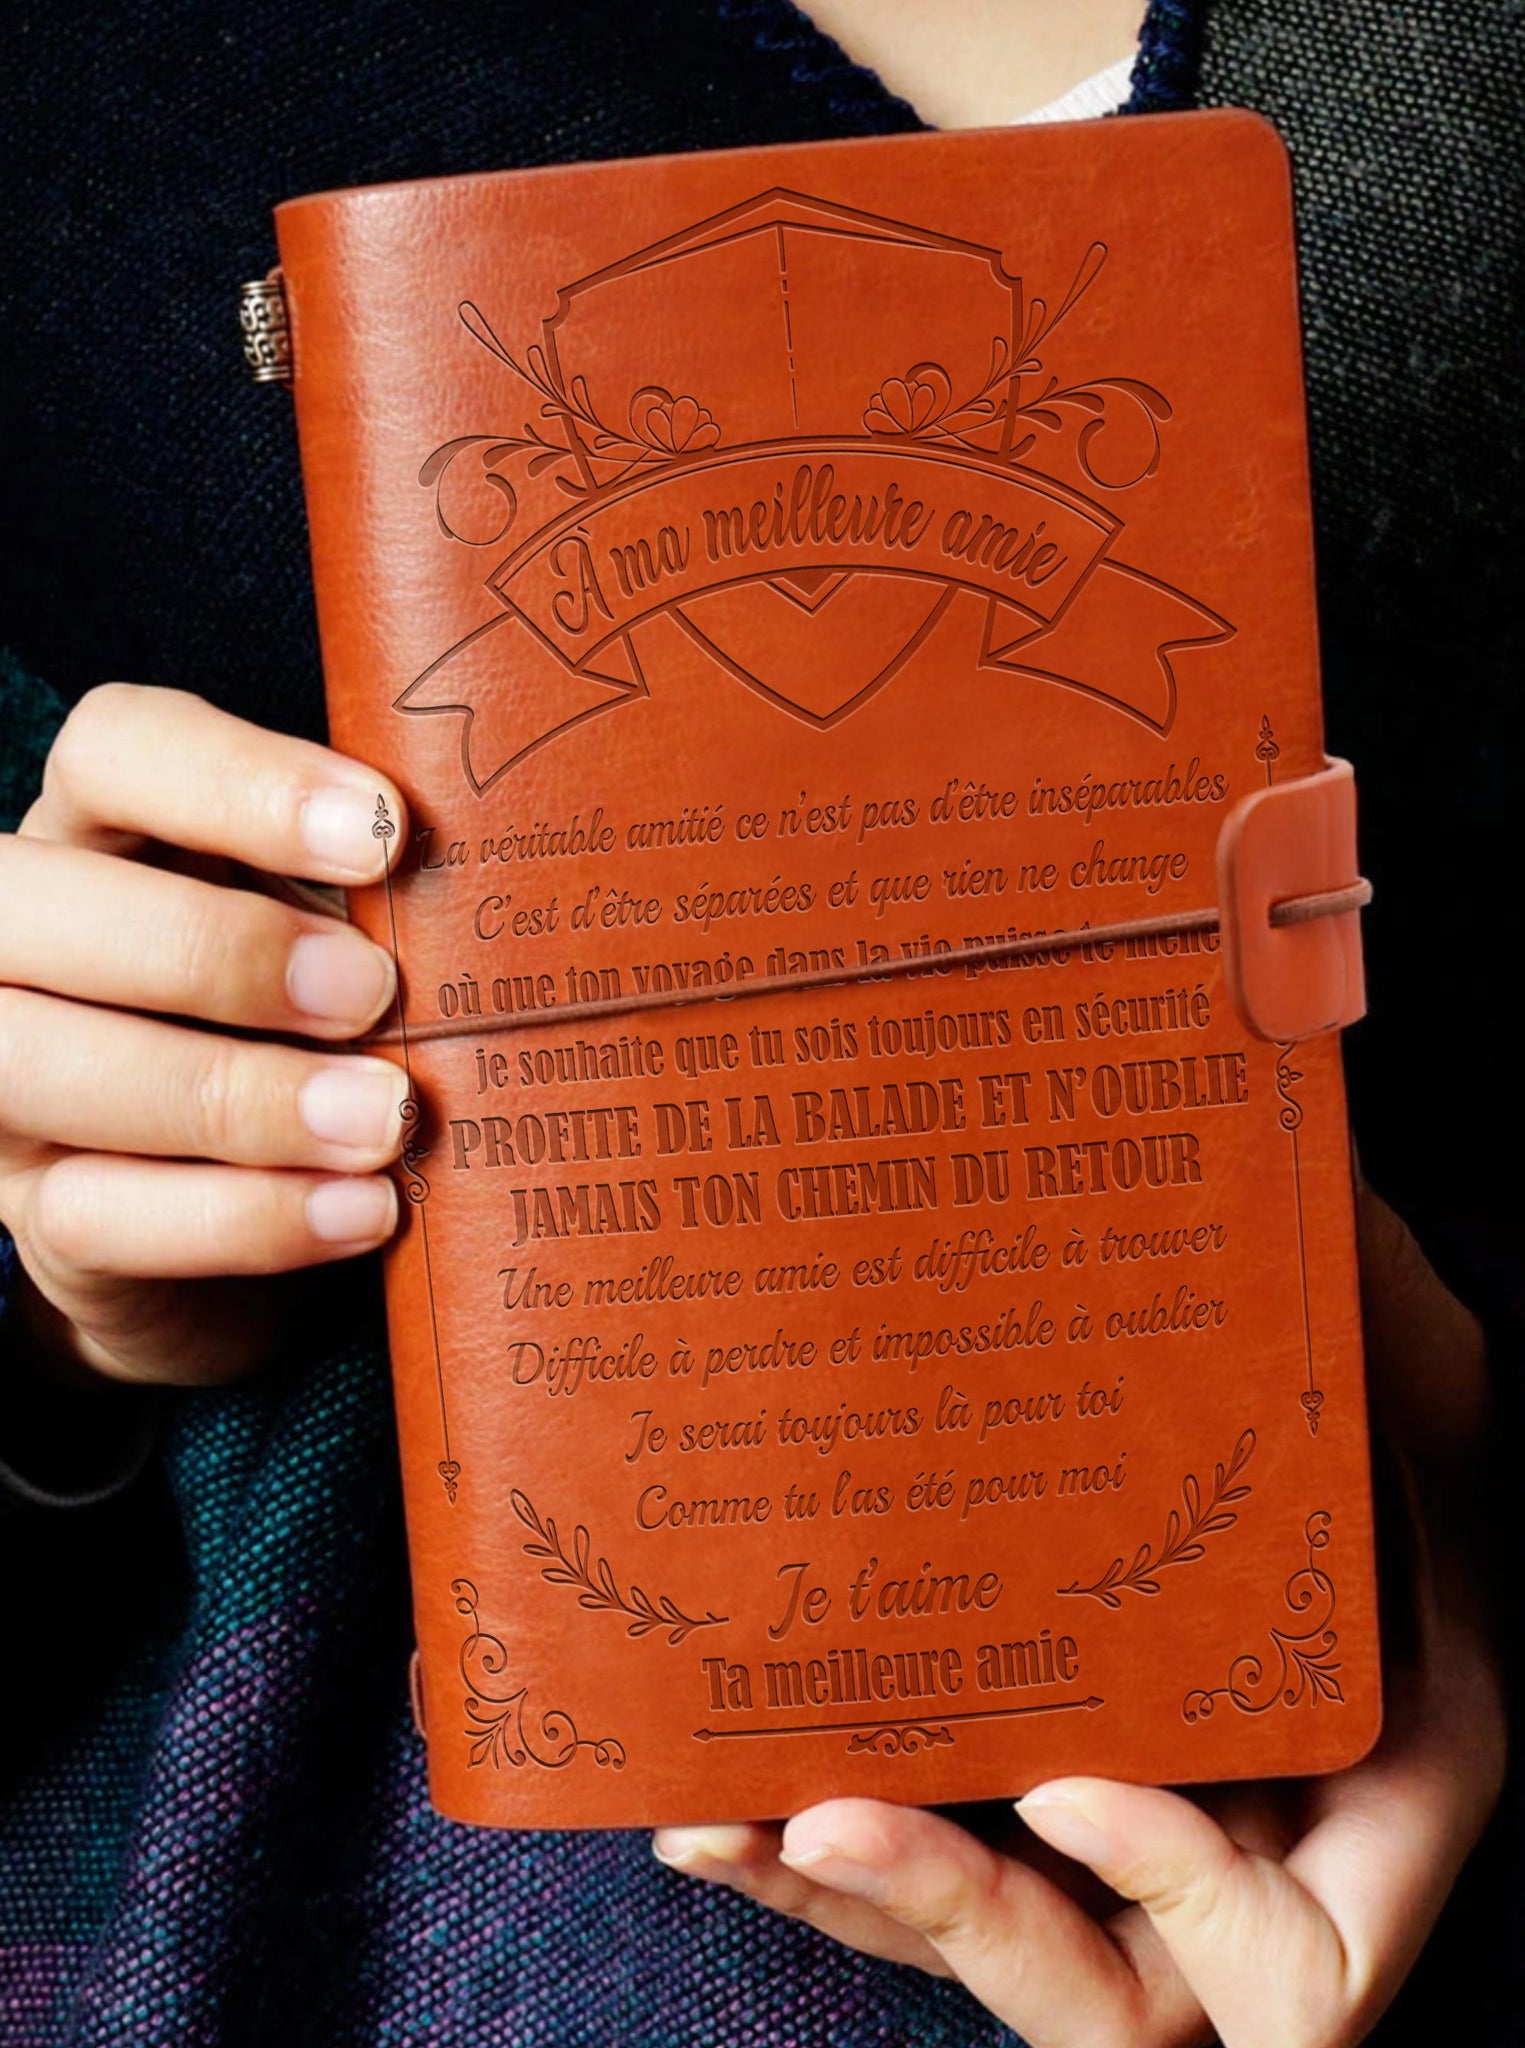 À ma meilleure amie
La véritable amitié ce n'est pas d'être inséparables
C'est d'être séparées et que rien ne change
où que ton voyage dans la vie puisse te mener
je souhaite que tu sois toujours en sécurité
PROFITE DE LA BALADE ET N'OUBLIE
JAMAIS TON CHEMIN DU RETOUR
Une meilleure amie est difficile à trouver
Difficile à perdre et impossible à oublier
Je serai toujours là pour toi
Comme tu l'as été pour moi
Je t'aime
Ta meilleure amie